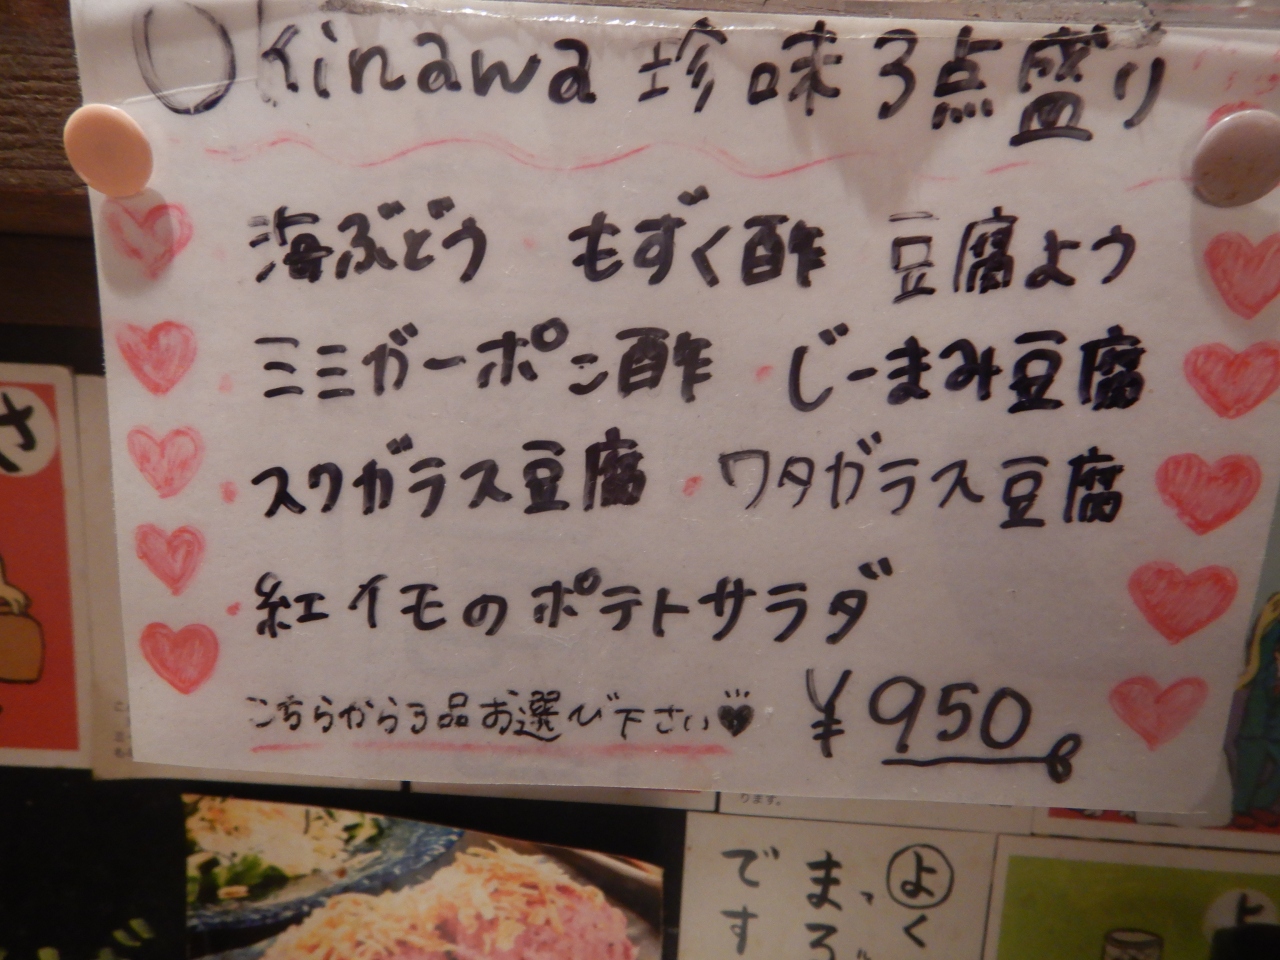 Okinawa 珍味3点盛り
海ぶどう・もずく酢 豆腐よう
・ミミガーポン酢・じーまみ豆腐
・スクガラス豆腐・ワタガラス豆腐
・紅イモのポテトサラダ
こちらから3品お選び下さい♥ ¥950
さ
ります。
よく
まっ
です
よ